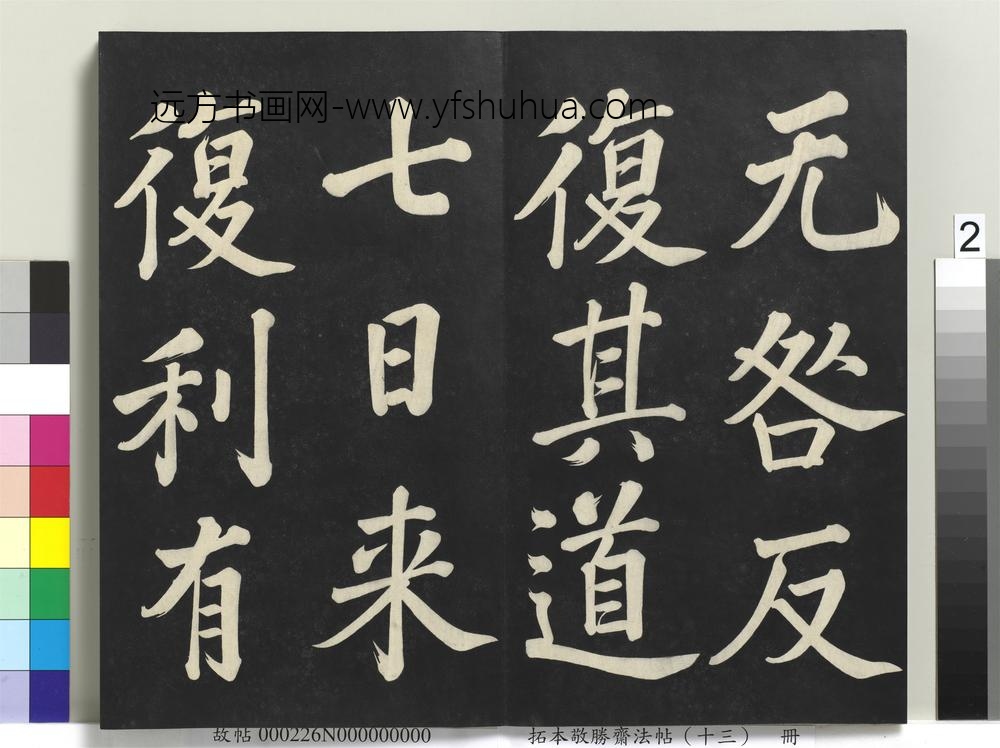 远方书画网-www.yfshuhua.com
无咎反
復其道
七日来
復利有
2
故帖 000226N000000000
拓本敬勝齋法帖（十三） 冊